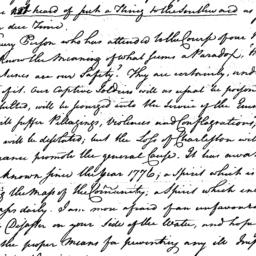 heard of such a Thing to the Southward as
due Time.
Person who has attended to the Course of our
Know the Meaning of what seems a Paradox,
are our Safety? They are certainly, and
of it. Our Captive Soldiers will as usual be poison
will be pressed into the Service of the Enem
suffer Ravagings, Violences and Conflagrations,
will be desolated, but the Loss of Charleston will
promote the general Cause. It has awa
known since the Year 1776; a Spirit which is
the Mass of the Community; a Spirit which
daily. I am more afraid of an unfavoura
Disaster on your Side of the Water, and hope
the proper Means for preventing any ill Imp